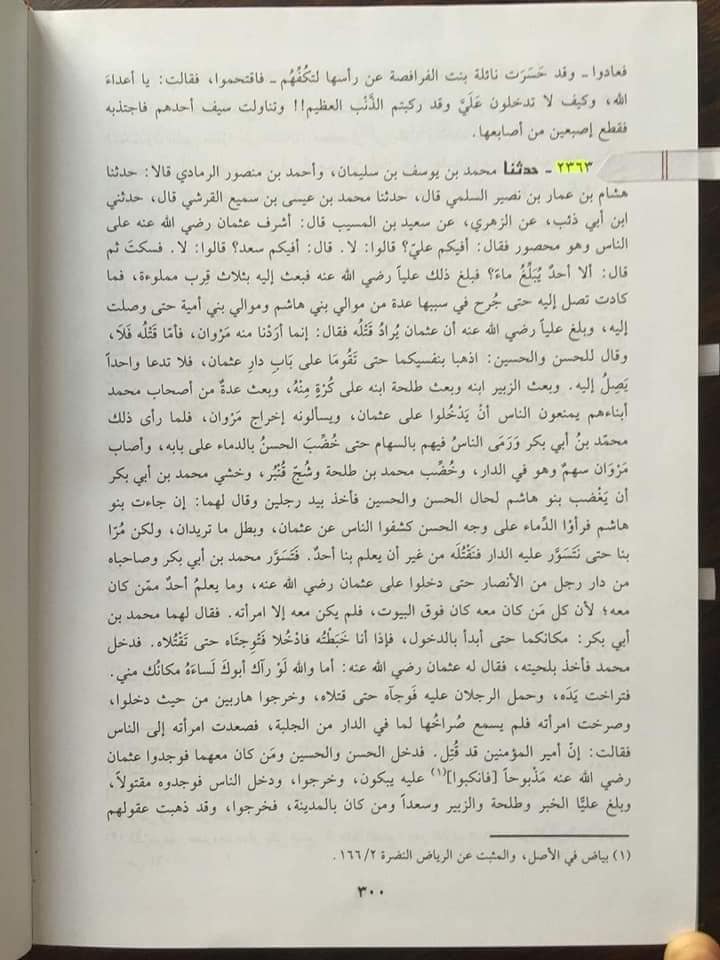 فعادوا ـ وقد حَسَرَت نائلة بنت الفرافصة عن رأسها لتكُفَّهُم ـ فاقتحموا، فقالت: يا أعداءَ
الله، وكيف لا تدخلون عَلَيَّ وقد ركبتم الذَّنْب العظيم!! وتناولت سيف أحدهم فاجتذبه
فقطع إصبعين من أصابعها.
٢٣٦٣ ـ حدثنا محمد بن يوسف بن سليمان، وأحمد بن منصور الرمادي قالا: حدثنا
هشام بن عمار بن نصير السلمي قال، حدثنا محمد بن عيسى بن سميع القرشي قال، حدثني
ابن أبي ذئب، عن الزهري، عن سعيد بن المسيب قال: أشرف عثمان رضي الله عنه على
الناس وهو محصور فقال: أفيكم عليّ؟ قالوا: لا. قال: أفيكم سعد؟ قالوا: لا. فسكتَ ثم
قال: ألا أحدٌ يُبَلِّغُ ماءً؟ فبلغ ذلك علياً رضي الله عنه فبعث إليه بثلاث قِرب مملوءة، فما
كادت تصل إليه حتى جُرح في سببها عدة من موالي بني هاشم وموالي بني أمية حتى وصلت
إليه، وبلغ علياً رضي الله عنه أن عثمان يُرادُ قَتْلُه فقال: إنما أرَدْنا منه مَرْوان، فأمّا قَتْلُه فَلَا،
وقال للحسن والحسين: اذهبا بنفسيكما حتى تَقُومَا على بَابِ دارِ عثمان، فلا تدعا واحداً
يَصِلُ إليه. وبعث الزبير ابنه وبعث طلحة ابنه على كُرْهٍ مِنْهُ، وبعث عدةٌ من أصحاب محمد
أبناءهم يمنعون الناس أنْ يَدْخُلوا على عثمان، ويسألونه إخراج مَرْوان، فلما رأى ذلك
محمّد بنُ أبي بكر وَرَمَى الناسُ فيهم بالسهام حتى خُضِّبَ الحسنُ بالدماء على بابه، وأصاب
مَرْوَان سهمٌ وهو في الدار، وخُضِّب محمد بن طلحة وشُجّ قُنْبُر، وخشي محمد بن أبي بكر
أن يَغْضب بنو هاشم لحال الحسن والحسين فأخذ بيد رجلين وقال لهما: إن جاءت بنو
هاشم فرأوْا الدِّماء على وجه الحسن كشفوا الناس عن عثمان، وبطل ما تريدان، ولكن مُرّا
بنا حتى نَتَسَوَّر عليه الدار فنَقْتُلَه من غير أن يعلم بنا أحدٌ. فَتَسوَّر محمد بن أبي بكر وصاحباه
من دار رجل من الأنصار حتى دخلوا على عثمان رضي الله عنه، وما يعلمُ أحدٌ ممّن كان
معه؛ لأن كل مَن كان معه كان فوق البيوت، فلم يكن معه إلا امرأته. فقال لهما محمد بن
أبي بكر: مكانكما حتى أبدأ بالدخول، فإذا أنا خَبَطْتُه فادْخُلا فَتَوجئَاه حتى تَقْتُلاه. فدخل
محمد فأخذ بلحيته، فقال له عثمان رضي الله عنه: أما والله لَوْ رآك أبوكَ لَساءَهُ مكانُك مني.
فتراخت يَدَه، وحمل الرجلان عليه فَوجآه حتى قتلاه، وخرجوا هاربين من حيث دخلوا،
وصرخت امرأته فلم يسمع صُراخُها لما في الدار من الجلبة، فصعدت امرأته إلى الناس
فقالت: إنّ أمير المؤمنين قد قُتِل. فدخل الحسن والحسين ومَن كان معهما فوجدوا عثمان
رضي الله عنه مَذْبوحاً [فانكبوا](١) عليه يبكون، وخرجوا، ودخل الناس فوجدوه مقتولاً،
وبلغ عليًّا الخبر وطلحة والزبير وسعداً ومن كان بالمدينة، فخرجوا، وقد ذهبت عقولهم
(١) بياض في الأصل، والمثبت عن الرياض النضرة ١٦٦/٢.
٣٠٠